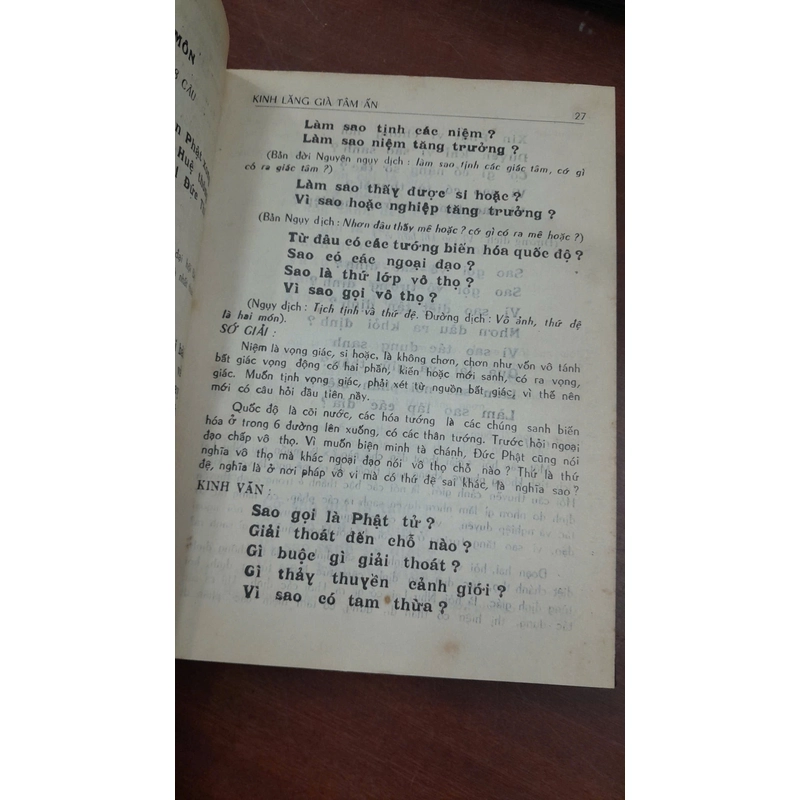 MÔN
8 CÂU
Huệ
Đức
KINH LĂNG GIÀ TÂM ẤN
27
Làm sao tịnh các niệm ?
Làm sao niệm tăng trưởng ?
(Bản đời Nguyên ngụy dịch : làm sao tịnh các giác tâm, cớ gì
có ra giác tâm ?)
Làm sao thấy được si hoặc ?
Vì sao hoặc nghiệp tăng trưởng ?
(Bản Ngụy dịch : Nhơn đâu thấy mê hoặc ? cớ gì có ra mê hoặc ?)
Từ đâu có các tướng biến hóa quốc độ ?
Sao có các ngoại đạo ?
Sao là thứ lớp vô thọ ?
Vì sao gọi vô thọ ?
(Ngụy dịch : Tịch tịnh và thứ đệ. Đường dịch : Vô ảnh, thứ đệ
là hai món).
SỚ GIẢI :
Niệm là vọng giác, si hoặc. là không chơn, chơn như vốn vô tánh
bất giác vọng động có hai phần, kiến hoặc mới sanh, có ra vọng,
giác. Muốn tịnh vọng giác, phải xét từ nguồn bất giác, vì thế nên
mới có câu hỏi đầu tiên nầy.
Quốc độ là cõi nước, các hóa tướng là các chúng sanh biến
hóa ở trong 6 đường lên xuống, có các thân tướng. Trước hỏi ngoại
đạo chấp vô thọ. Vì muốn biện minh tà chánh, Đức Phật cũng nói
nghĩa vô thọ mà khác ngoại đạo nói vô thọ chỗ nào ? Thứ là thứ
đệ, nghĩa là ở nơi pháp vô vi mà có thứ đệ sai khác, là nghĩa sao ?
KINH VĂN :
Sao gọi là Phật tử ?
Giải thoát đến chỗ nào ?
Gì buộc gì giải thoát ?
Gì thấy thuyền cảnh giới ?
Vì sao có tam thừa ?